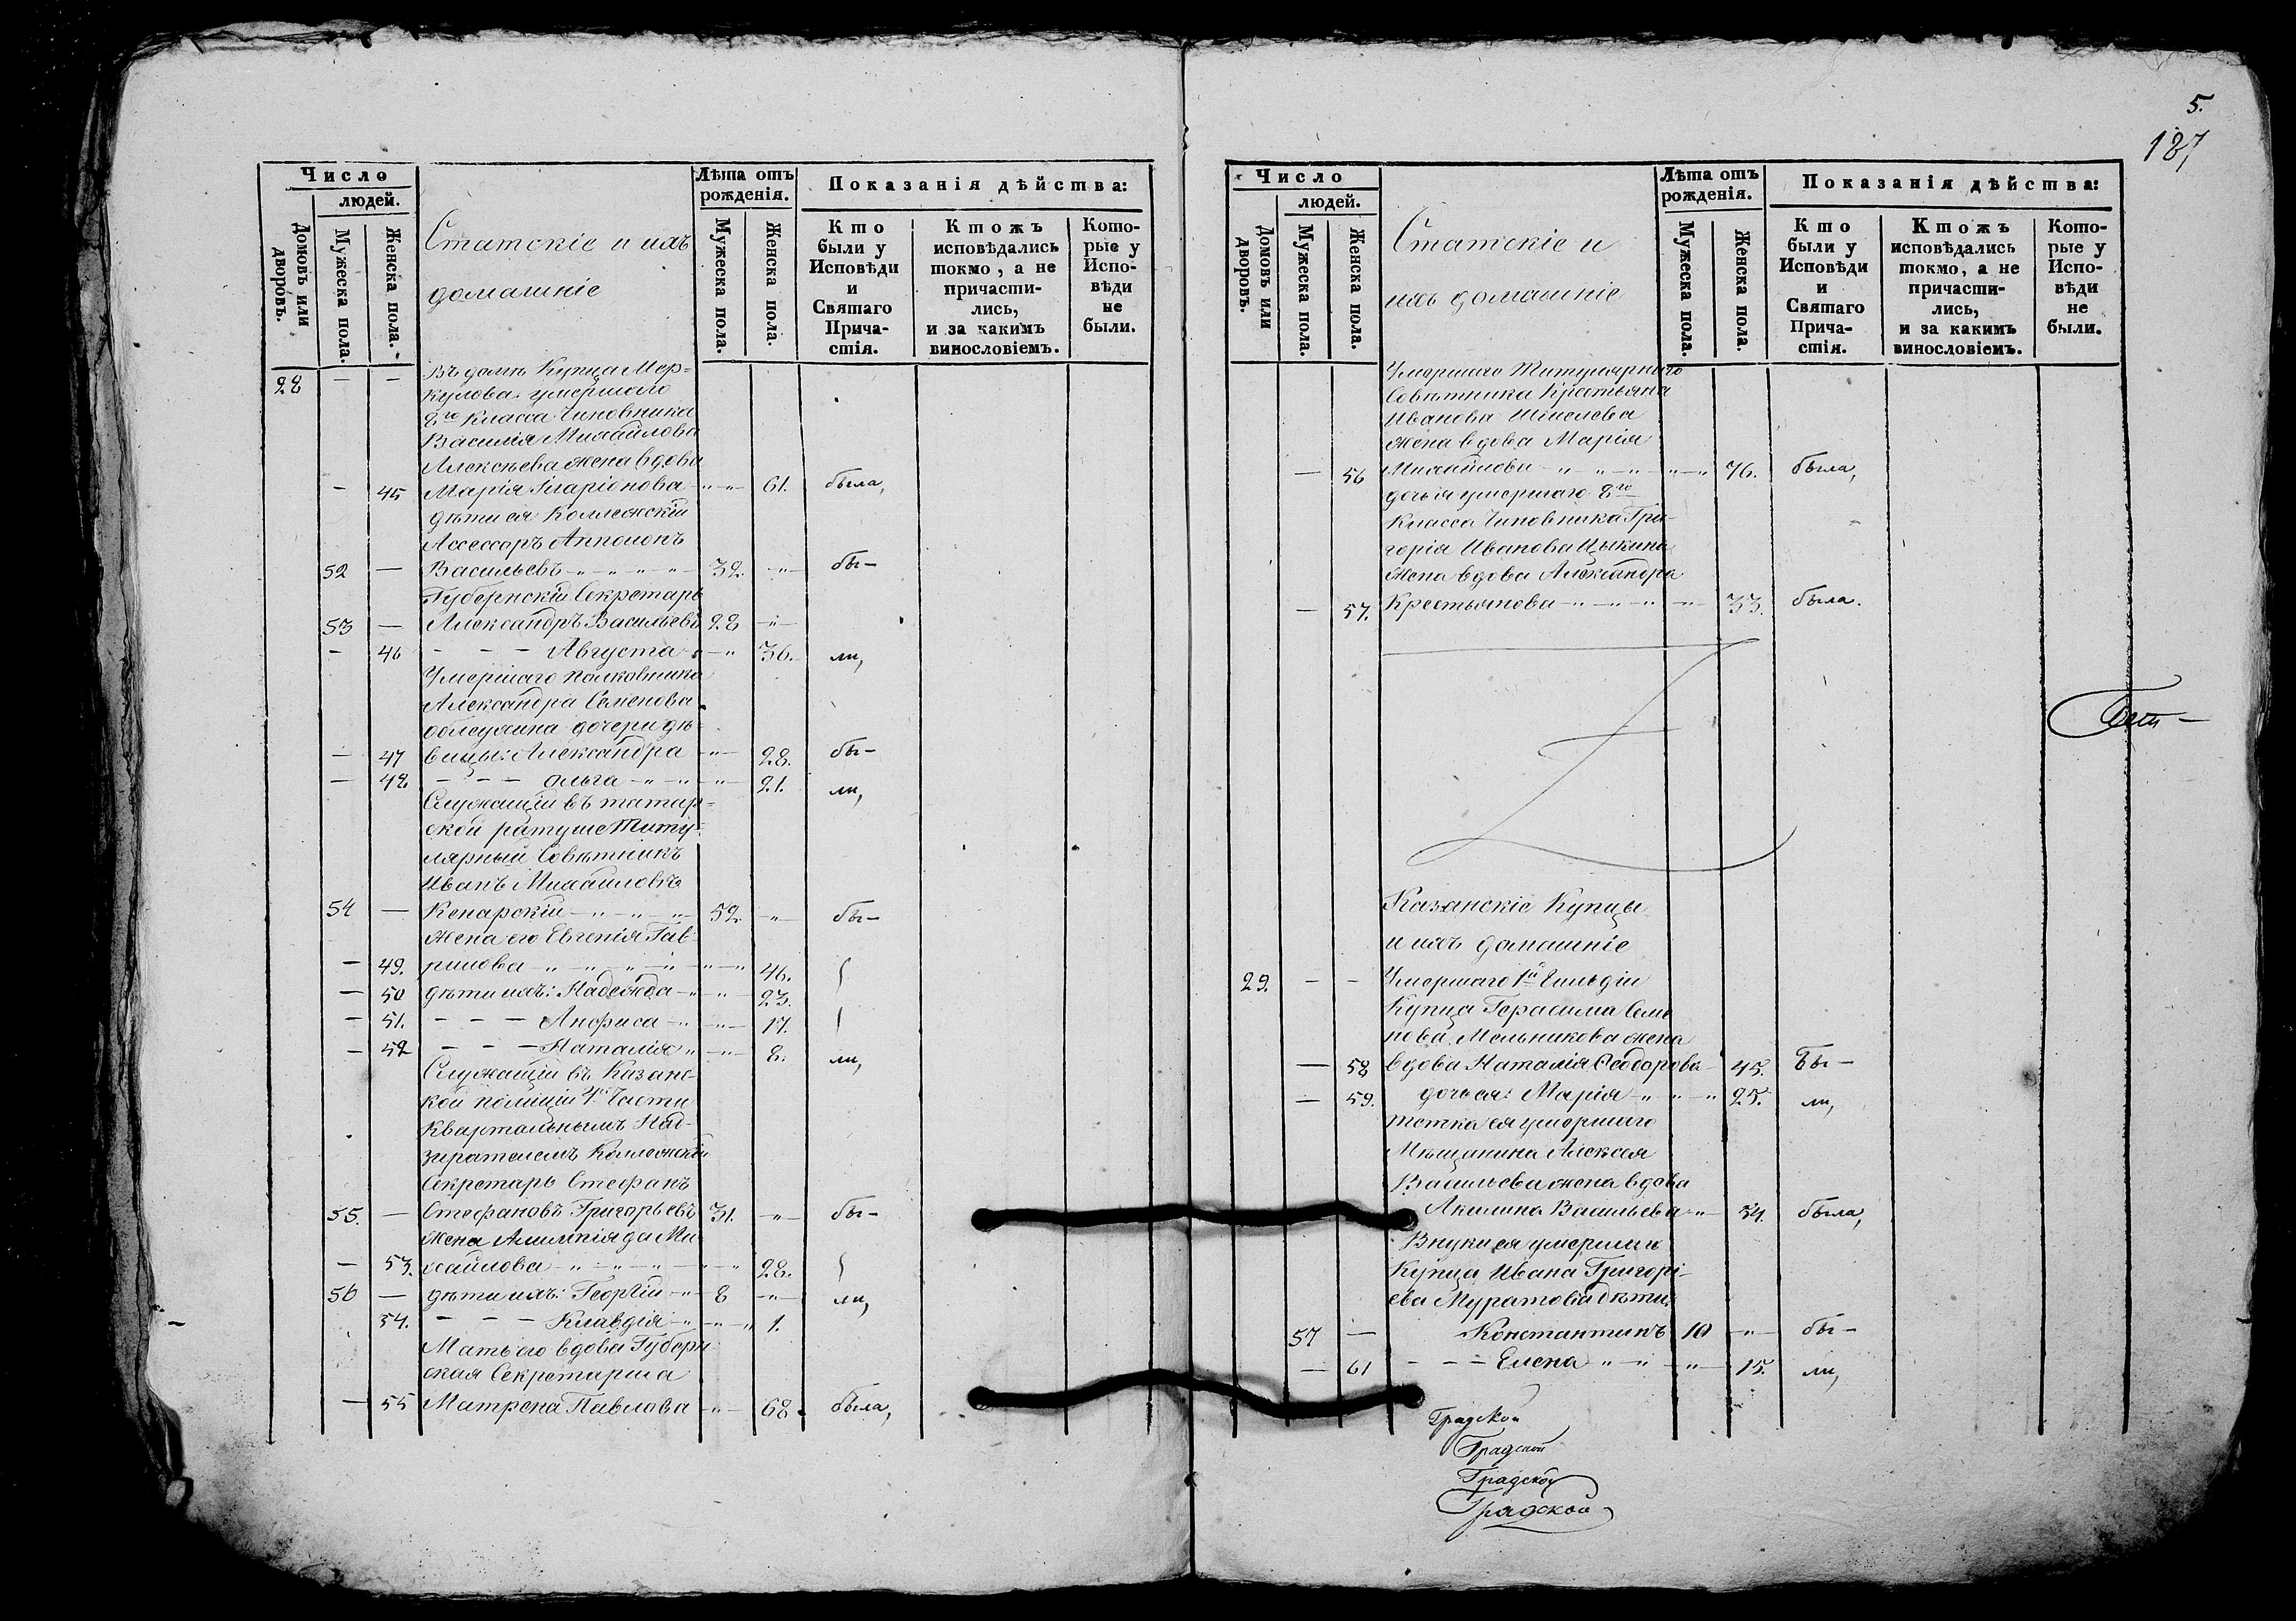 5.
187
Число
людей.
Домовъ или дворовъ.
Мужеска пола.
Женска пола.
Статскіе и ихъ
домашніе
Лѣта отъ рожденія.
Мужеска пола.
Женска пола.
Показанія дѣйства:
Кто были у Исповѣди и Святаго Прича-стія.
Ктожъ исповѣдались токмо, а не причасти-лись, и за какимъ винословіемъ.
Кото-рые у Испо-вѣди не были.
28 — — Въ домѣ Купца Мер=
кулова умершаго
8го класса Чиновника
Василія Михайлова
Алексѣева жена вдова
— 45 Марія Иларіонова 61. была,
дѣти ея Коллежскій
Асессоръ Апполонъ
52 — Васильевъ 32. бы-
Губернскій Секретарь
53 — Александръ Васильевъ 28
— 46 — — — Августа 36. ли,
Умершаго Полковника
Александра Семенова
дочери дѣ-
— 47 вицы: Александра 28. бы-
— 48 — — — Ольга 21. ли,
Служащій въ татар=
ской ратуше Титу-
лярный Совѣтникъ
Иванъ Михайловъ
54 — Кенарскій 52. бы-
жена его Евгенія Гав-
— 49. рилова 46.
— 50 дѣти ихъ: Надежда 23.
— 51. — — — Анфиса 17.
— 52 — — — Наталія 8. ли,
Служащій въ Казанс-
кой полиціи Части
Квартальнымъ Над-
зирателемъ Коллежскій
Секретарь Стефанъ
55. — Стефановъ Григорьевъ 31. бы-
жена Алимпіяда Ми-
— 53. хайлова 28.
56 — дѣти ихъ: Георгій 8 ли,
54. — — — Клавдія 1.
Мать его вдова Губерн-
ская Секретарша
— 55 Матрена Павлова 68. была,
Число
людей.
Домовъ или дворовъ.
Мужеска пола.
Женска пола.
Статскіе и
ихъ домашніе
Лѣта отъ рожденія.
Мужеска пола.
Женска пола.
Показанія дѣйства:
Кто были у Исповѣди и Святаго Прича-стія.
Ктожъ исповѣдались токмо, а не причасти-лись, и за какимъ винословіемъ.
Кото-рые у Испо-вѣди не были.
Умершаго Титулярнаго
Совѣтника Крестьяна
Иванова
жена вдова Марія
— 56 Михайлова 76. была,
дочь ея умершаго 8го
Класса Чиновника Гри-
горія Иванова Цыкина
жена вдова Александра
— 57. Крестьянова 33. была.
Казанскіе Купцы
и ихъ домашніе
29. — — Умершаго 1й Гильдіи
Купца Герасима Семе
нова Мельникова жена
— 58 вдова Наталія Ѳеодорова 45. Бы-
— 59. дочь ея: Марія 25. ли,
тетка ея умершаго
Мѣщанина Алексѣя
Васильева жена вдова
Акилина Васильева 54. была,
Внуки ея умершаго
Купца Ивана Григорі-
ева Муратова дѣти:
57 — Константинъ 10 бы-
— 61 — — — Елена 15. ли,
Градской
Градской
Градской
Градской